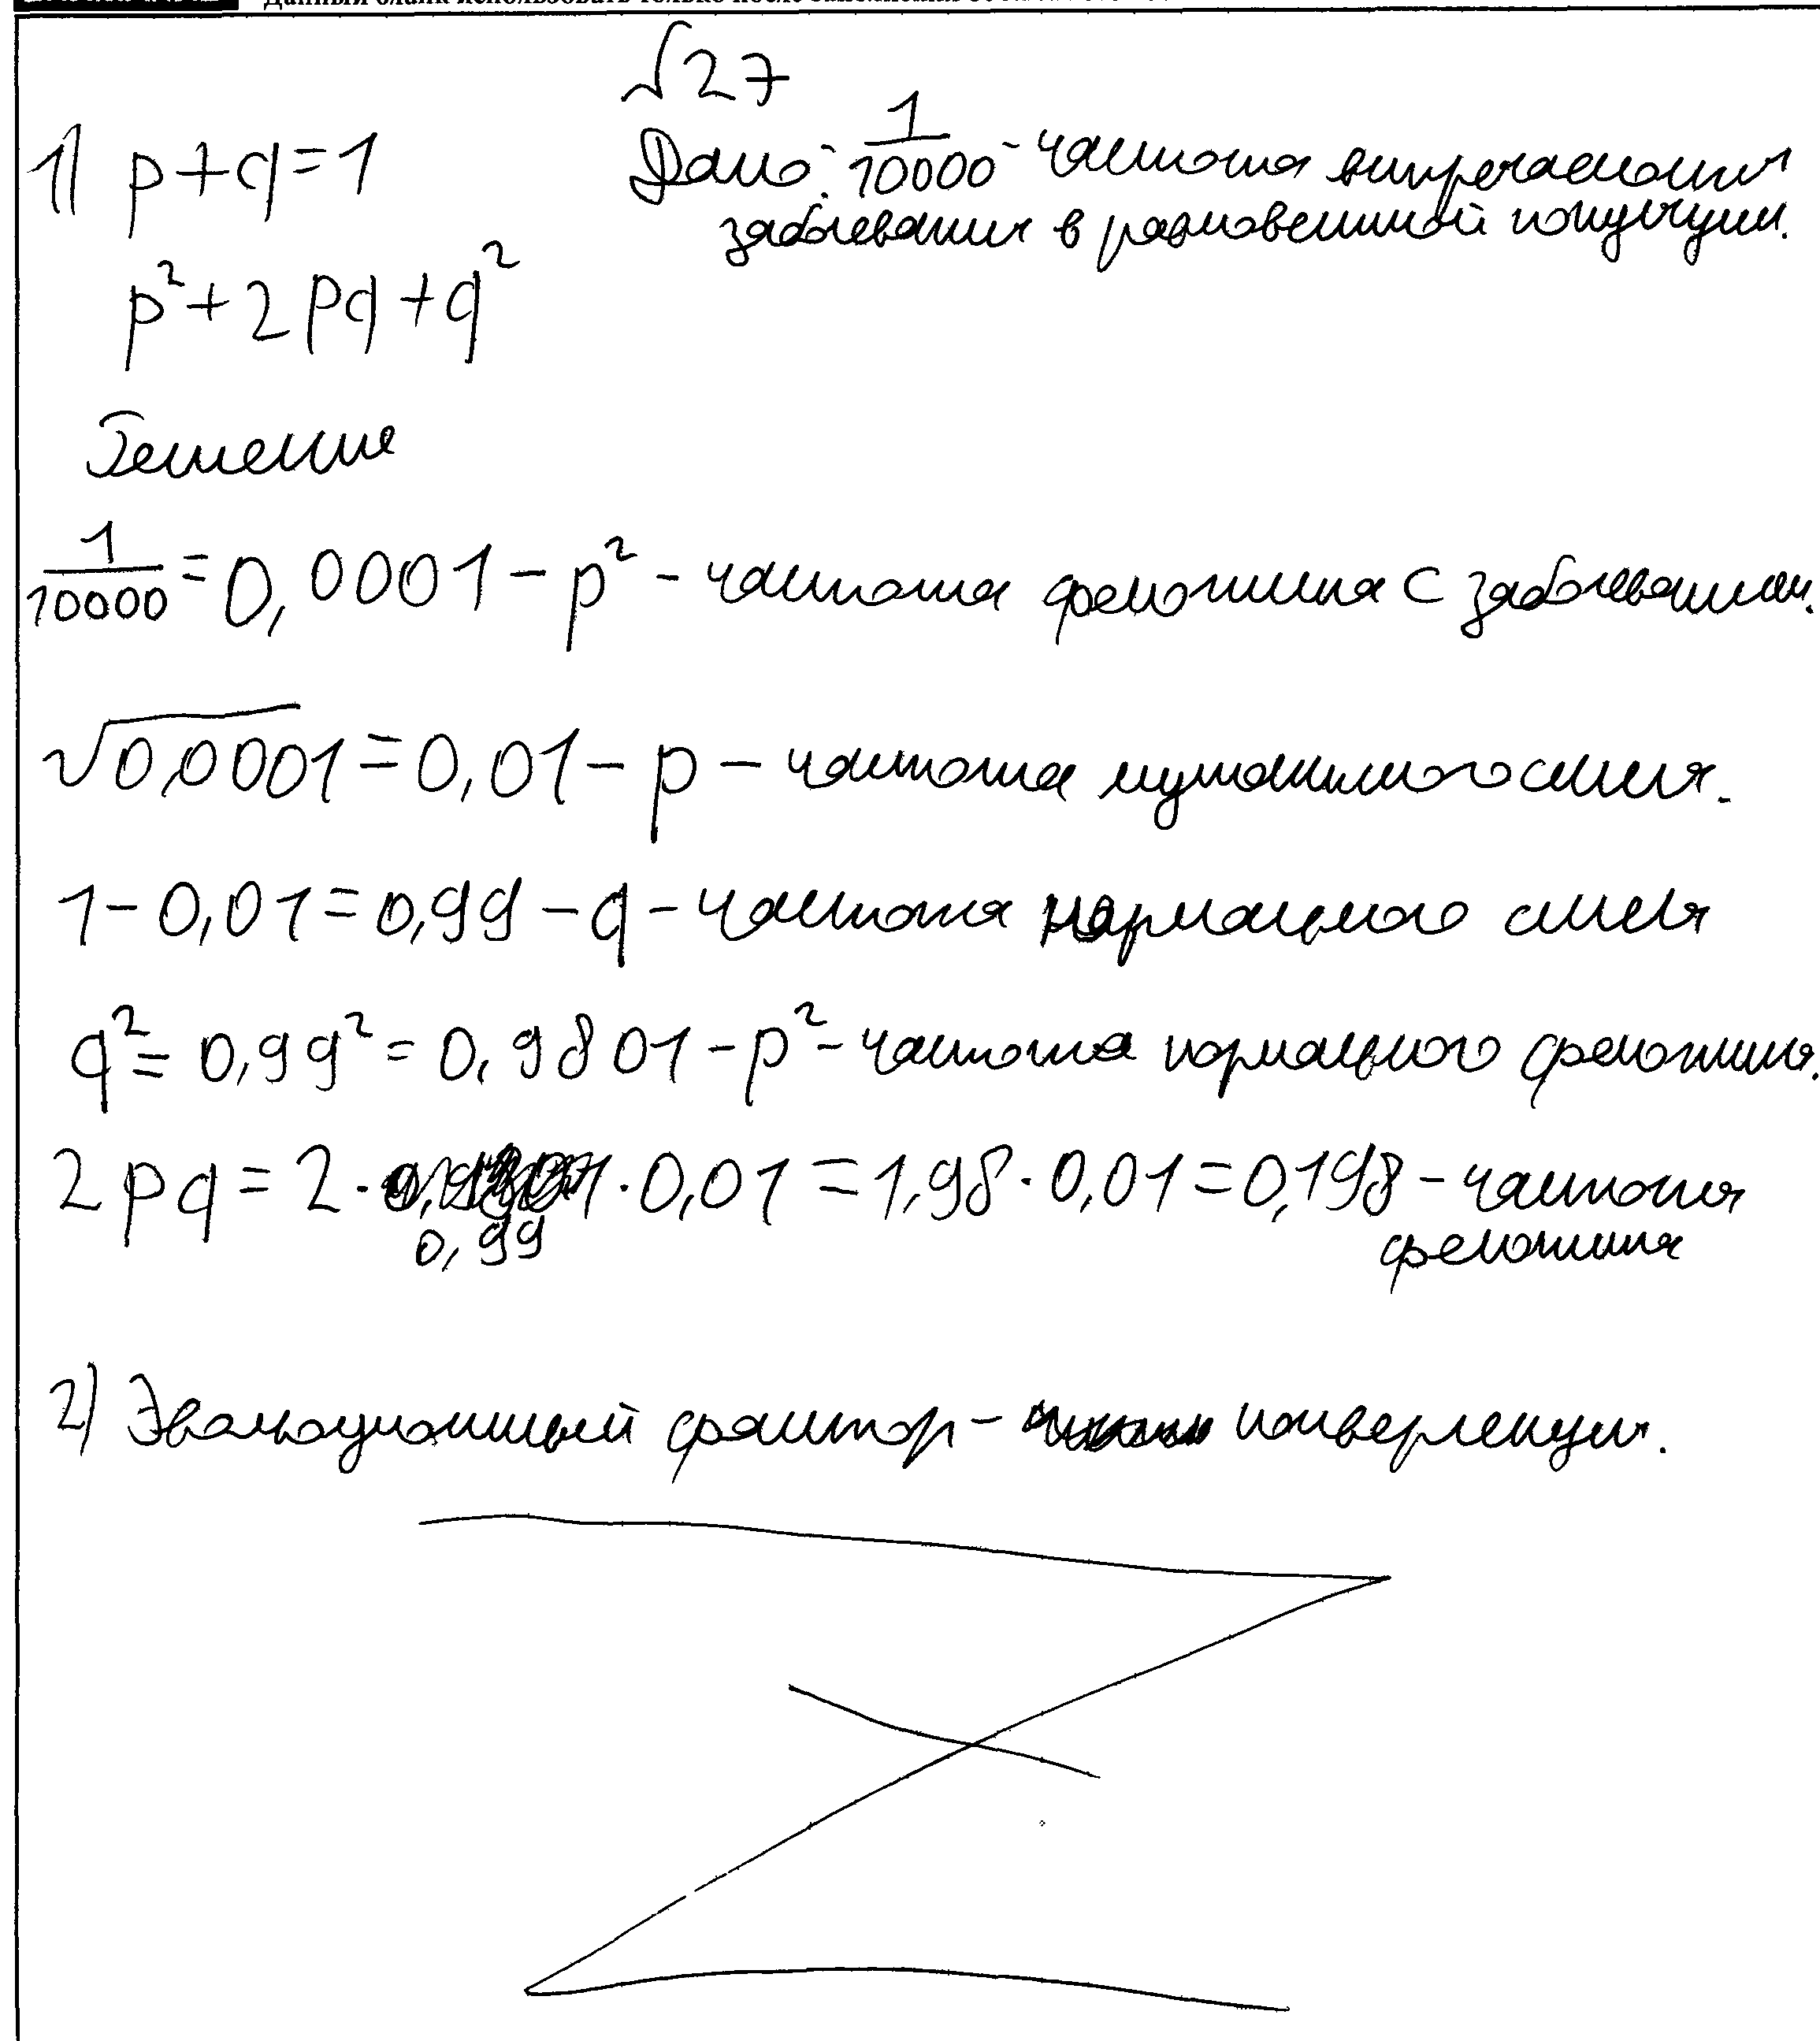 Данный бланк использовать только после заполнения
√27
1) p+q=1
Дано: 1/10000 - частота встречаемости
заболевания в равновесной популяции.
p²+2pq+q²
Решение
1/10000=0,0001 - p² - частота фенотипа с заболеванием.
√0,0001=0,01 - p - частота мутантного аллеля.
1-0,01=0,99 - q - частота нормального аллеля
q²=0,99²=0,9801 - p² - частота нормального фенотипа.
2pq=2·0,99·0,01=1,98·0,01=0,198 - частота
фенотипа
2) Эволюционный фактор - конвергенция.